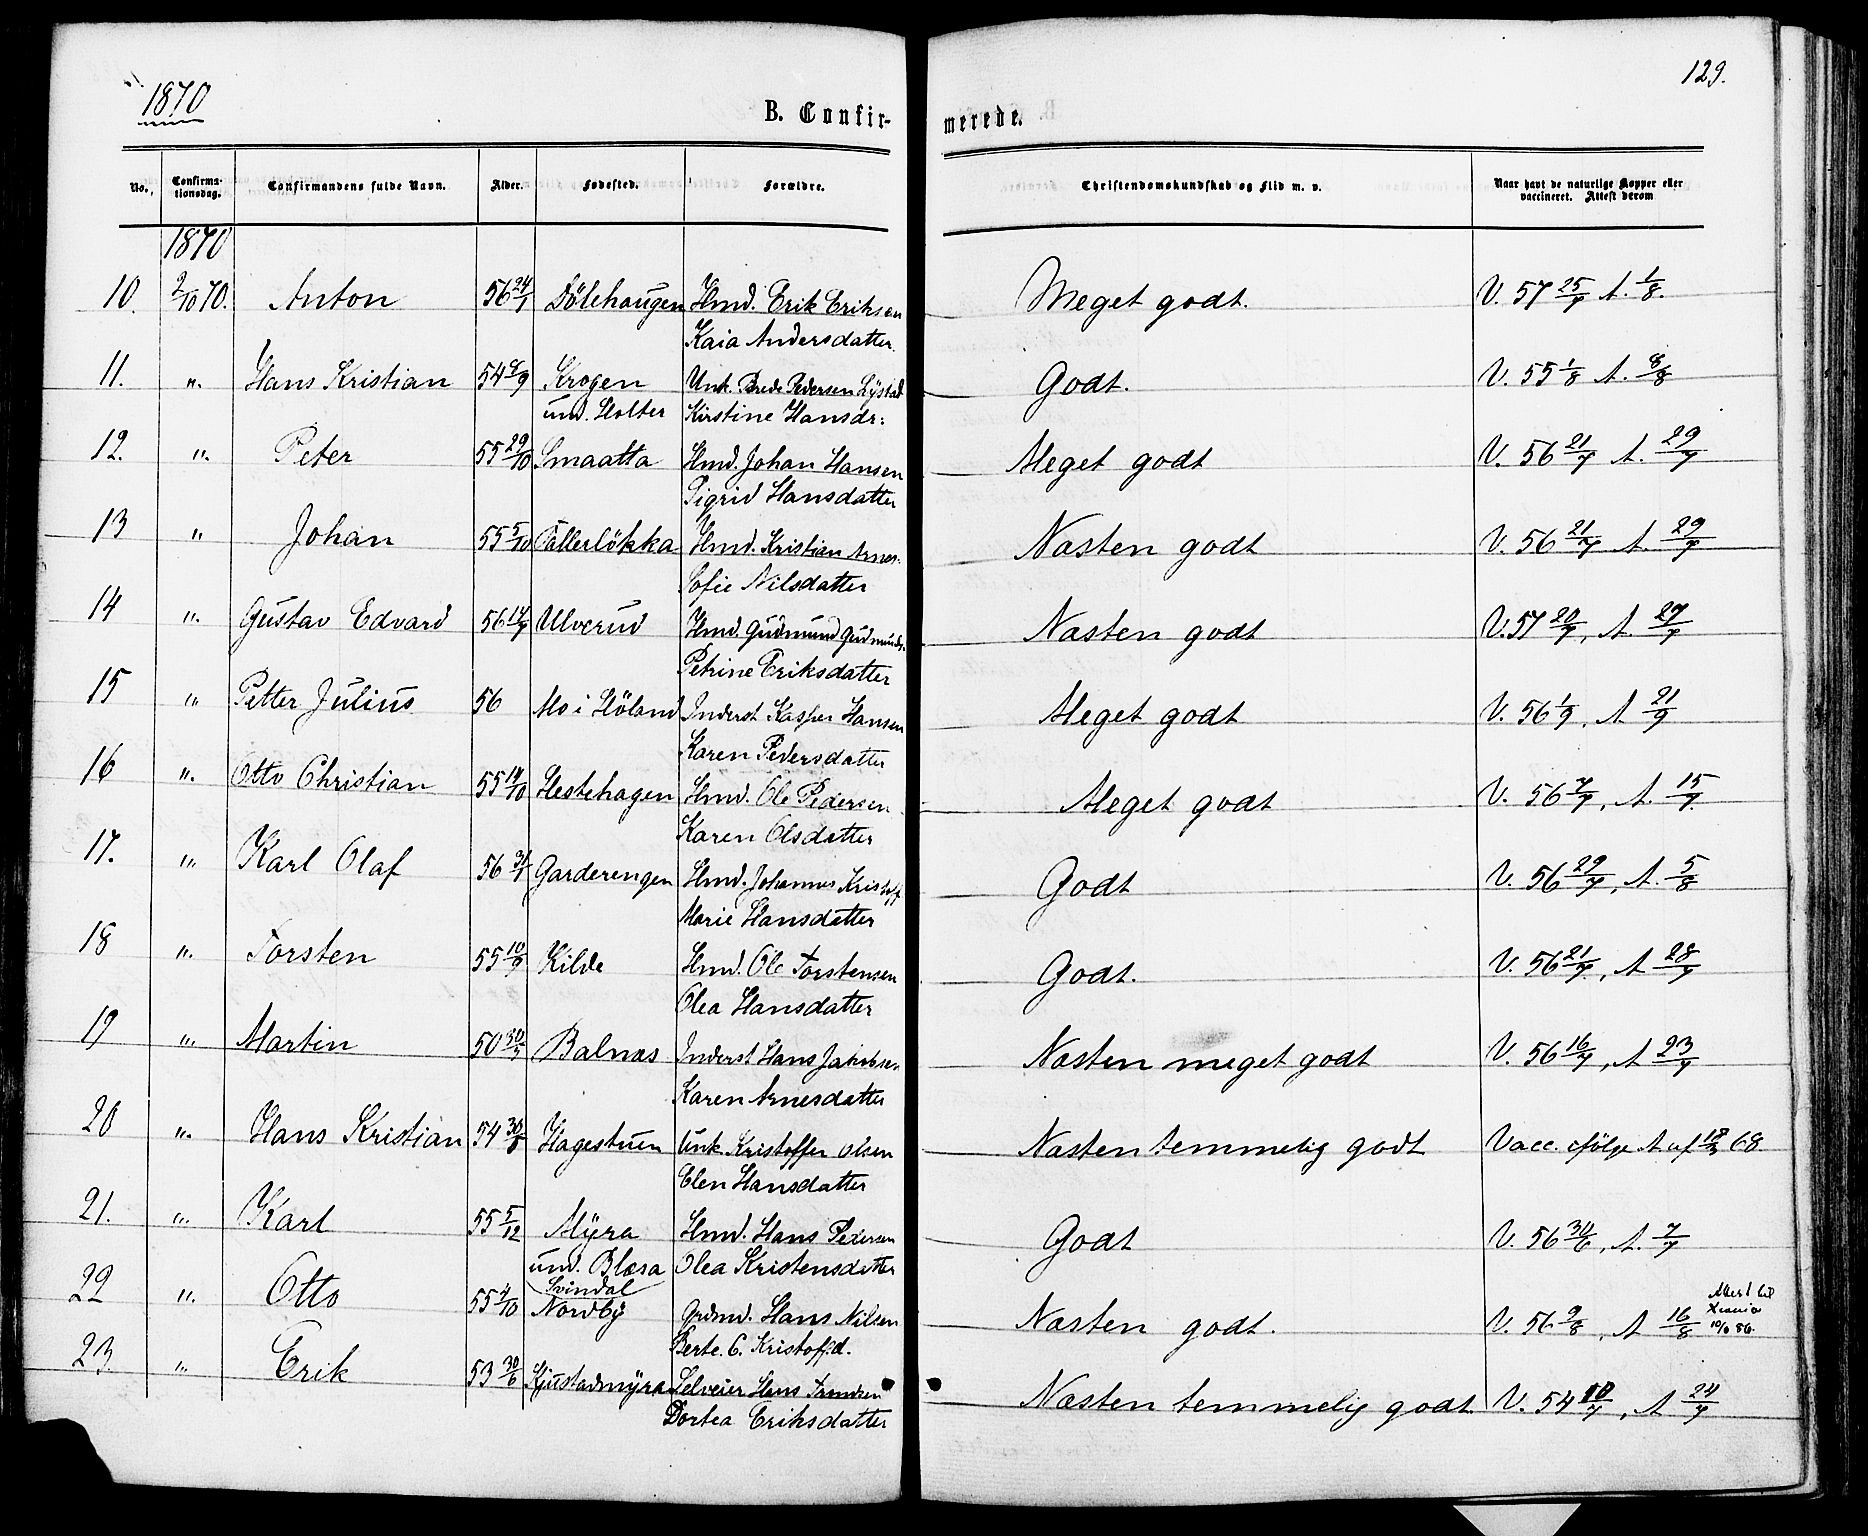 1870
129.
B. Confir-
merede.
No.
Confirma-
tionsdag.
Confirmandens fulde Navn.
Alder.
Fødested.
Forældre.
Christendomskundskab og Flid m. v.
Naar havt de naturlige Kopper eller
vaccineret. Attest derom
1870
10. 2/10 70. Anton 56 24/1 Dölehaugen Hmd. Erik Eriksen Meget godt. V. 57 25/7 A. 1/8.
Kaia Andersdatter.
11. ". Hans Kristian 54 8/9 Krogen Unk. Brede Pedersen Lÿstad Godt. V. 55 1/8 A. 8/8
und. Holter Kirstine Hansdr:
12. ". Peter 55 29/10 Smaatta Hmd. Johan Hansen Meget godt V. 56 21/7 A. 29/7
Sigrid Hansdatter
13 " Johan 55 5/10 Tallerlökka Hmd. Kristian Arnes. Næsten godt V. 56 21/7 A. 29/7
Sofie Nilsdatter
14 ". Gustav Edvard 56 14/7 Ulverud Hmd. Gudmund Gudmunds. Næsten godt V. 57 20/7, A. 27/7
Petrine Eriksdatter
15 " Petter Julius 56 Mo i Höland Inderst Kasper Hansen Meget godt V. 56 1/9, A 21/9
Karen Pedersdatter
16 ". Otto Christian 55 14/10 Hestehagen Hmd. Ole Pedersen Meget godt V. 56 7/7, A. 15/7
Karen Olsdatter
17. " Karl Olaf 56 31/1 Garderengen Hmd. Johannes Kristoff Godt V. 56 29/7, A. 5/8
Marie Hansdatter
18 ". Torsten 55 10/9 Kilde Hmd. Ole Torstensen Godt. V. 56 21/7, A 28/7
Olea Hansdatter
19 " Martin 50 30/5 Balnæs Inderst Hans Jakobsen Næsten meget godt V. 56 16/7, A 23/7
Karen Arnesdatter
20 ". Hans Kristian 54 30/8 Hagestuen Unk. Kristoffer Olsen Næsten temmelig godt Vacc. ifölge A af 68.
Elen Hansdatter
21. " Karl 55 5/12 Mÿra Hmd. Hans Pedersen Godt V. 56 30/6, A. 7/7
und. Blæsa Olea Kristensdatter
Svindal
22 ". Otto 55 4/10 Nordbÿ Grdmd. Hans Nilsen Næsten godt. V. 56 9/8, A 16/8
Attest til
Xiania
86.
Berte. C. Kristof.d.
23 " Erik 53 30/6 Kjustadmÿra Selveier Hans Næsten temmelig godt. V. 54 10/7, A 24/7
Dortea Eriksdatter